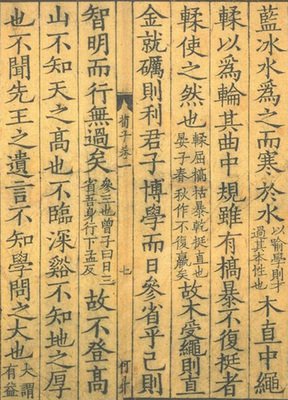 藍冰水為之而寒於水以喻學則才過其本性也木直中繩
輮以為輪其曲中規雖有槁暴不復挺者
輮使之然也輮屈槁枯暴乾挺直也晏子春秋作不復贏矣故木受繩則直
金就礪則利君子博學而日參省乎己則
荀子卷一
七
智明而行無過矣參三也曾子曰日三省吾身行下孟反故不登高
山不知天之高也不臨深谿不知地之厚
也不聞先王之遺言不知學問之大也大謂有益